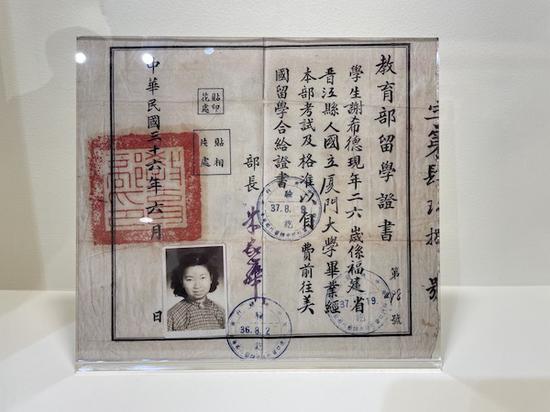 教育部留學證書
第
號
學生謝希德現年二六歲係福建省
晋江縣人國立厦門大學畢業經
本部考試及格准以自費前往美
國留學合給證書
部長
貼印
花處
貼相
片處
中華民國三十六年六月
日
驗
訖
37.8.
36.8.2